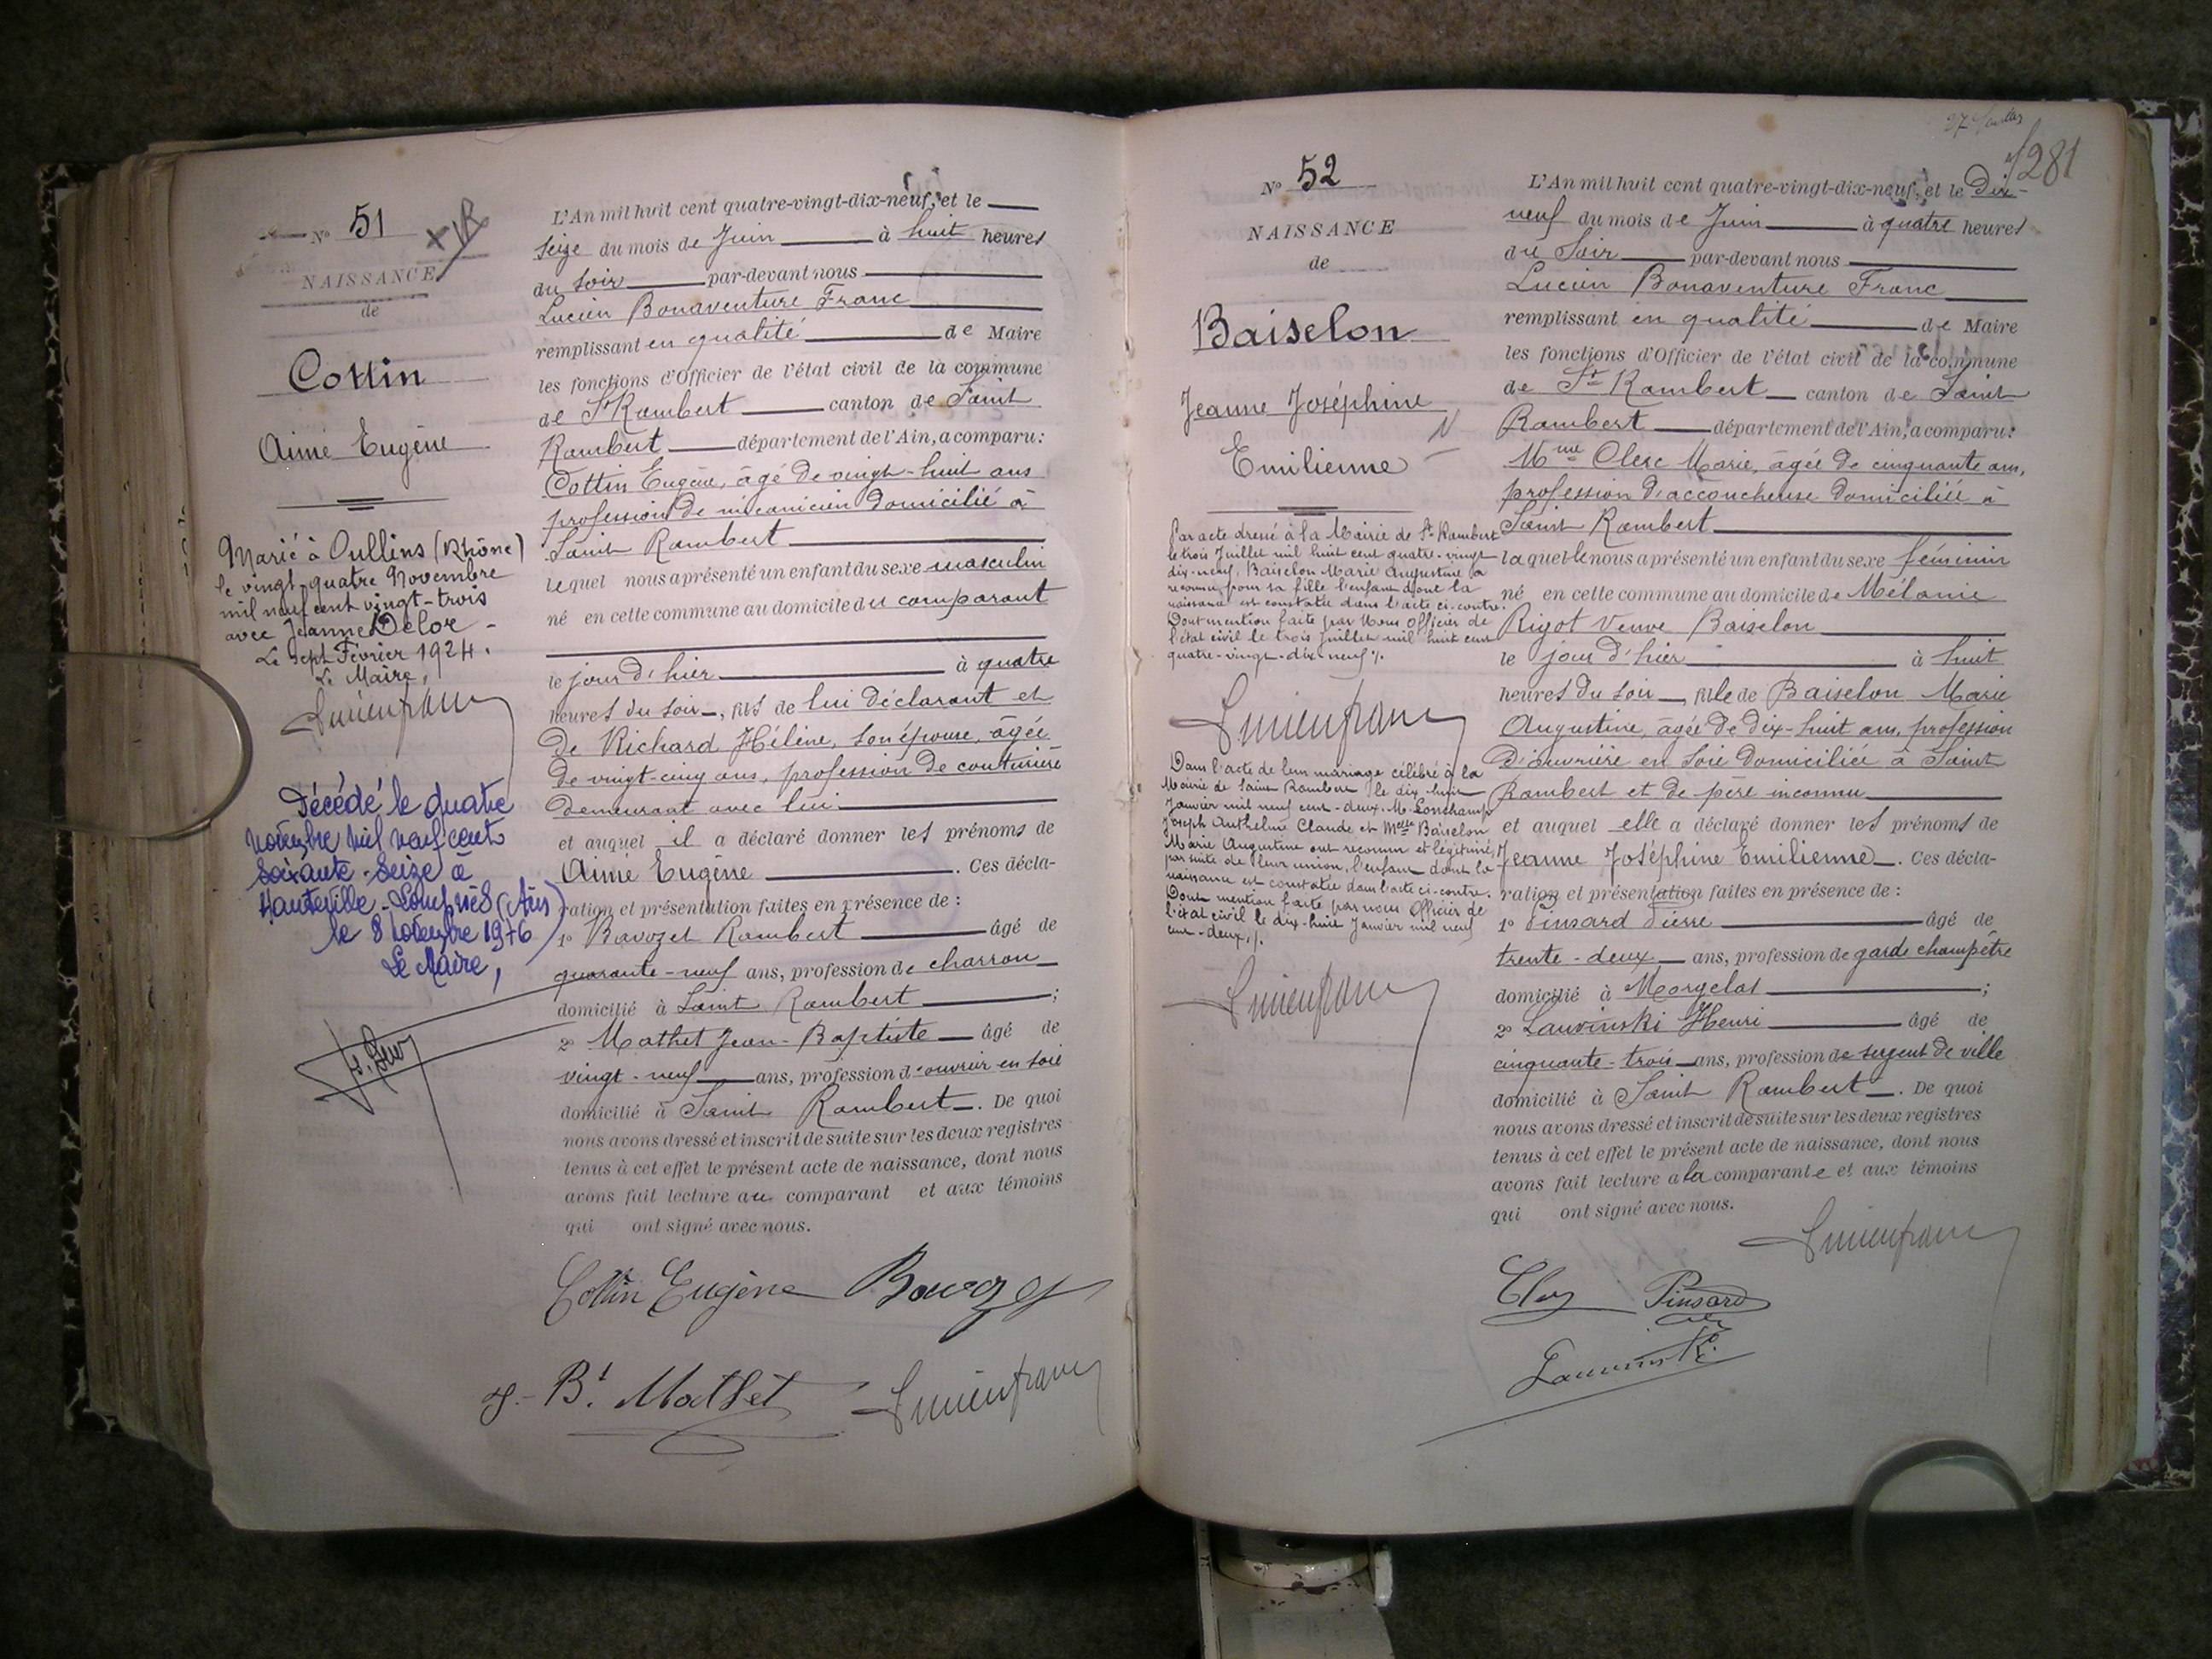 N° 51
NAISSANCE
de
Cottin
Aimé Eugène
Marié à Oullins (Rhône)
le vingt-quatre Novembre
mil neuf cent vingt-trois
avec Jeanne Delor -
Le sept Février 1924.
Le Maire,
Lucien franc
Décédé le quatre
novembre mil neuf cent
soixante-seize à
Hauteville-Lompnès (Ain)
le 8 novembre 1976
Le Maire,
L'An mil huit cent quatre-vingt-dix-neuf, et le
seize du mois de Juin à huit heures
du soir par-devant nous
Lucien Bonaventure Franc
remplissant en qualité de Maire
les fonctions d'Officier de l'état civil de la commune
de St Rambert canton de Saint
Rambert département de l'Ain, a comparu:
Cottin Eugène, âgé de vingt-huit ans
profession de mécanicien domicilié à
Saint Rambert
lequel nous a présenté un enfant du sexe masculin
né en cette commune au domicile du comparant
le jour d'hier à quatre
heures du soir, fils de lui déclarant et
de Richard Hélène, son épouse, âgée
de vingt-cinq ans, profession de couturière
demeurant avec lui
et auquel il a déclaré donner les prénoms de
Aimé Eugène. Ces décla-
ration et présentation faites en présence de :
1° Bavozet Rambert âgé de
quarante-neuf ans, profession de charron
domicilié à Saint Rambert ;
2° Mathet Jean-Baptiste âgé de
vingt-neuf ans, profession d'ouvrier en soie
domicilié à Saint Rambert. De quoi
nous avons dressé et inscrit de suite sur les deux registres
tenus à cet effet le présent acte de naissance, dont nous
avons fait lecture au comparant et aux témoins
qui ont signé avec nous.
Cottin Eugène Bavozet
J.-Bt. Mathet Lucien franc
281
N° 52
NAISSANCE
de
Baiselon
Jeanne Joséphine
Emilienne
Par acte dressé à la Mairie de St Rambert
le trois Juillet mil huit cent quatre-vingt
dix-neuf, Baiselon Marie Augustine a
reconnu pour sa fille l'enfant dont la
naissance est constatée dans l'acte ci-contre.
Dont mention faite par Nous Officier de
l'état civil le trois Juillet mil huit cent
quatre-vingt-dix-neuf ./.
Lucien franc
Dans l'acte de leur mariage célébré à la
Mairie de Saint Rambert le dix-huit
Janvier mil neuf cent-deux, M. Lonchamp
Joseph Anthelme Claude et Melle Baiselon
Marie Augustine ont reconnu et légitimé,
par suite de leur union, l'enfant dont la
naissance est constatée dans l'acte ci-contre.
Dont mention faite par nous Officier de
l'état civil le dix-huit Janvier mil neuf
cent-deux ./.
Lucien franc
L'An mil huit cent quatre-vingt-dix-neuf, et le Dix-
neuf du mois de Juin à quatre heures
du Soir par-devant nous
Lucien Bonaventure Franc
remplissant en qualité de Maire
les fonctions d'Officier de l'état civil de la commune
de St Rambert canton de Saint
Rambert département de l'Ain, a comparu:
Mme Clerc Marie, âgée de cinquante ans,
profession d'accoucheuse domiciliée à
Saint Rambert
laquelle nous a présenté un enfant du sexe féminin
né en cette commune au domicile de Mélanie
Rigot Veuve Baiselon
le jour d'hier à huit
heures du soir, fille de Baiselon Marie
Augustine, âgée de dix-huit ans, profession
d'ouvrière en soie domiciliée à Saint
Rambert et de père inconnu
et auquel elle a déclaré donner les prénoms de
Jeanne Joséphine Emilienne. Ces décla-
ration et présentation faites en présence de :
1° Pinsard Pierre âgé de
trente-deux ans, profession de garde champêtre
domicilié à Morgelas ;
2° Lauvinski Henri âgé de
cinquante-trois ans, profession de sergent de ville
domicilié à Saint Rambert. De quoi
nous avons dressé et inscrit de suite sur les deux registres
tenus à cet effet le présent acte de naissance, dont nous
avons fait lecture à la comparante et aux témoins
qui ont signé avec nous.
Lucien franc
Pinsard
Lauvinski